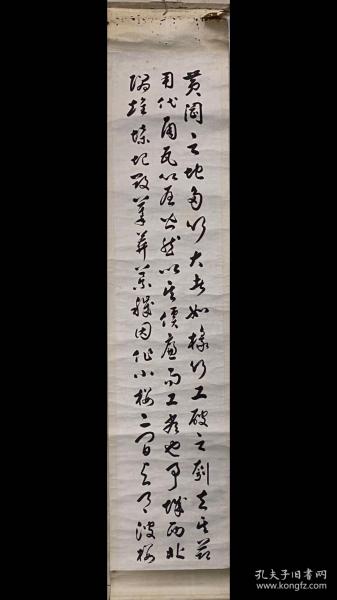 黄冈之地多竹大者如椽竹工破之刳去其节
用代陶瓦比屋皆然以其价廉而工省也予城西北
隅雉堞圮毁蓁莽荒秽因作小楼二间与月波楼
孔夫子旧书网
www.kongfz.com